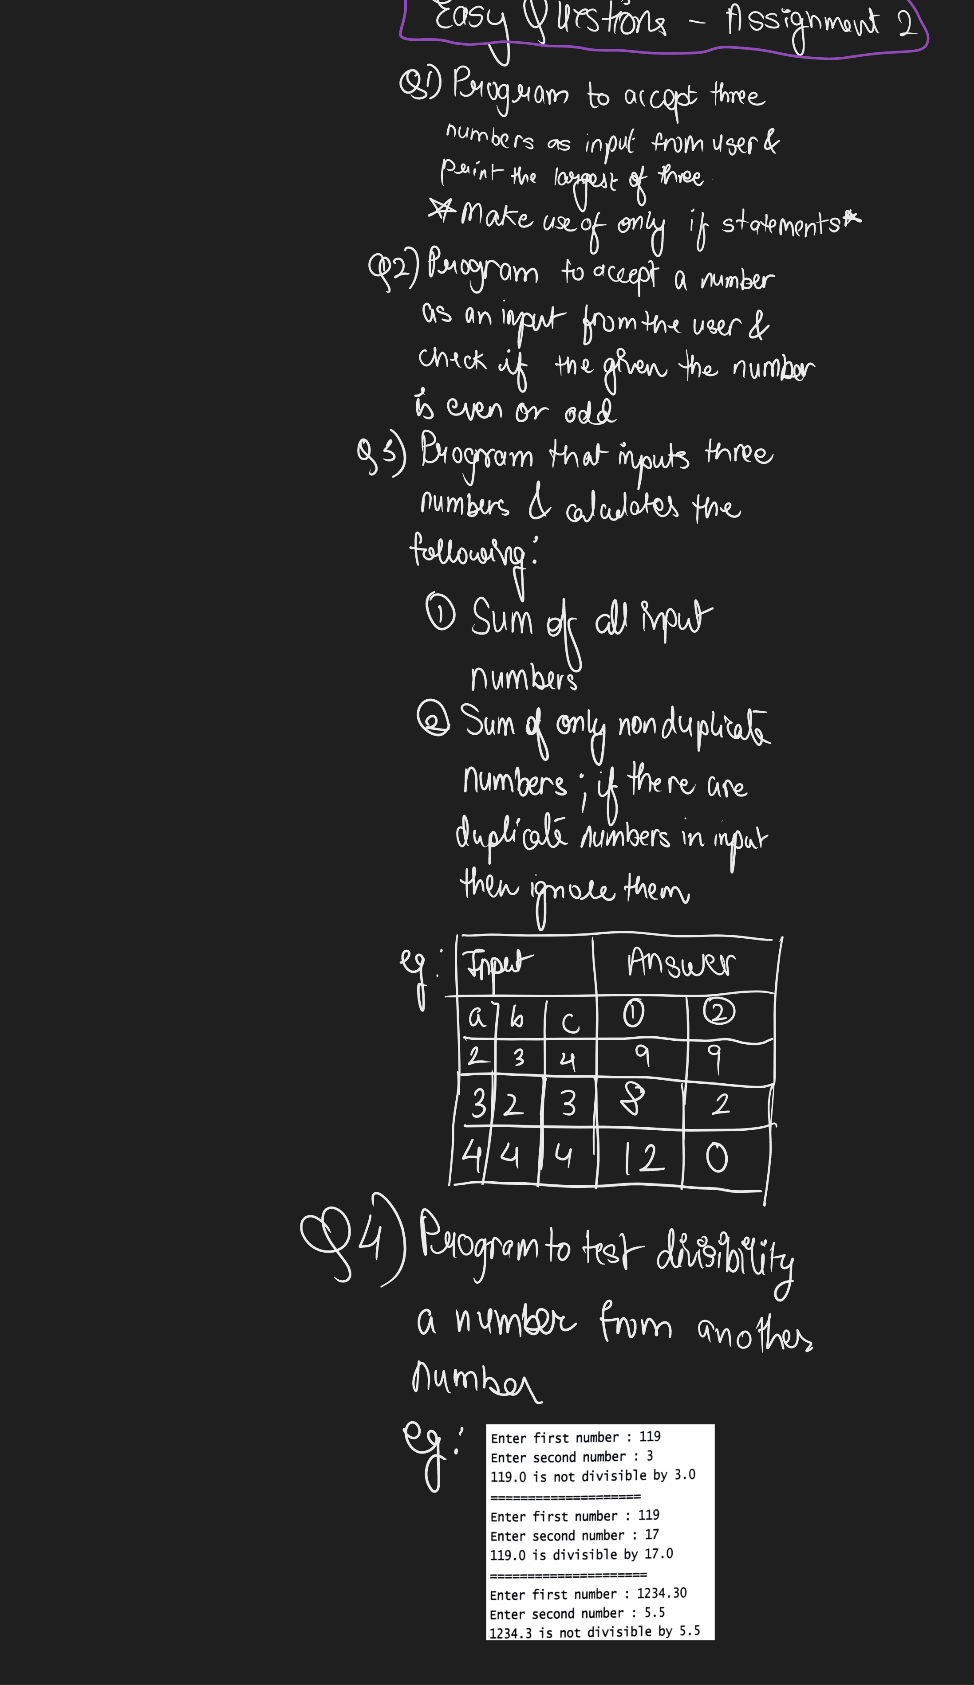 Easy Questions - Assignment 2
Q1) Program to accept three
numbers as input from user &
print the largest of three
*Make use of only if statements*
Q2) Program to accept a number
as an input from the user &
check if the given the number
is even or odd
Q3) Program that inputs three
numbers & calculates the
following:
① Sum of all input
numbers
② Sum of only non duplicate
numbers ; if there are
duplicate numbers in input
then ignore them
eg: Input Answer
a b c ① ②
2 3 4 9 9
3 2 3 8 2
4 4 4 12 0
Q4) Program to test divisibility
a number from another
number
eg:
Enter first number : 119
Enter second number : 3
119.0 is not divisible by 3.0
====================
Enter first number : 119
Enter second number : 17
119.0 is divisible by 17.0
=====================
Enter first number : 1234.30
Enter second number : 5.5
1234.3 is not divisible by 5.5